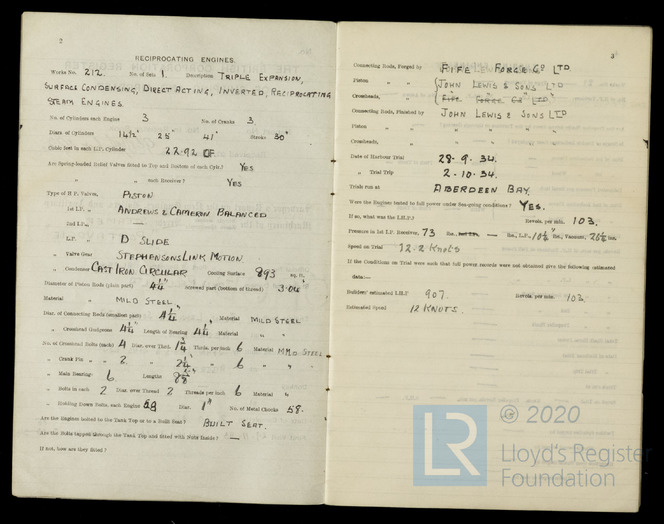 2
RECIPROCATING ENGINES.
Works No. 212. No. of Sets 1. Description TRIPLE EXPANSION,
SURFACE CONDENSING, DIRECT ACTING, INVERTED, RECIPROCATING
STEAM ENGINES.
No. of Cylinders each Engine 3 No. of Cranks 3.
Diars of Cylinders 14½" 25" 41" Stroke 30"
Cubic feet in each L.P. Cylinder 22.92 CF
Are Spring-loaded Relief Valves fitted to Top and Bottom of each Cyln.? YES
" " " each Receiver? YES
Type of H.P. Valves, PISTON
" 1st I.P. " ANDREWS & CAMERON BALANCED
" 2nd I.P. " —
" L.P. " D SLIDE
" Valve Gear STEPHENSONS LINK MOTION
" Condenser CAST IRON CIRCULAR Cooling Surface 893 sq. ft.
Diameter of Piston Rods (plain part) 4¼" Screwed part (bottom of thread)
Material MILD STEEL
Diar. of Connecting Rods (smallest part) 4¼" Material MILD STEEL
" Crosshead Gudgeons 4¼" Length of Bearing 4¼" Material "
No. of Crosshead Bolts (each) 4 Diar. over Thrd. 1¾" Thrds. per inch 6 Material MILD STEEL
" Crank Pin " " 2 " 2¼" " 6 " "
" Main Bearings 6 Lengths
" Bolts in each 2 Diar. over Thread 2 Threads per inch 6 Material "
" Holding Down Bolts, each Engine 58 Diar. 1" No. of Metal Chocks 58.
Are the Engines bolted to the Tank Top or to a Built Seat? BUILT SEAT.
Are the Bolts tapped through the Tank Top and fitted with Nuts Inside? —
If not, how are they fitted?
3
Connecting Rods, Forged by FIFE FORGE Co LTD.
Piston " " JOHN LEWIS & SONS LTD
Crossheads, " " FIFE FORGE Co LTD
Connecting Rods, Finished by JOHN LEWIS & SONS LTD
Piston " " " " " "
Crossheads, " " " " " "
Date of Harbour Trial 29.9.34.
" Trial Trip 2.10.34.
Trials run at ABERDEEN BAY.
Were the Engines tested to full power under Sea-going conditions? YES.
If so, what was the I.H.P.? Revols. per min. 103.
Pressure in 1st I.P. Receiver, 73 lbs., — lbs., L.P., 10½ lbs., Vacuum, 26½ ins.
Speed on Trial 12.2 KNOTS
If the Conditions on Trial were such that full power records were not obtained give the following estimated
data:—
Builders' estimated I.H.P. 907. Revols. per min. 103.
Estimated Speed 12 KNOTS.
© 2020
LR
Lloyd's Register
Foundation